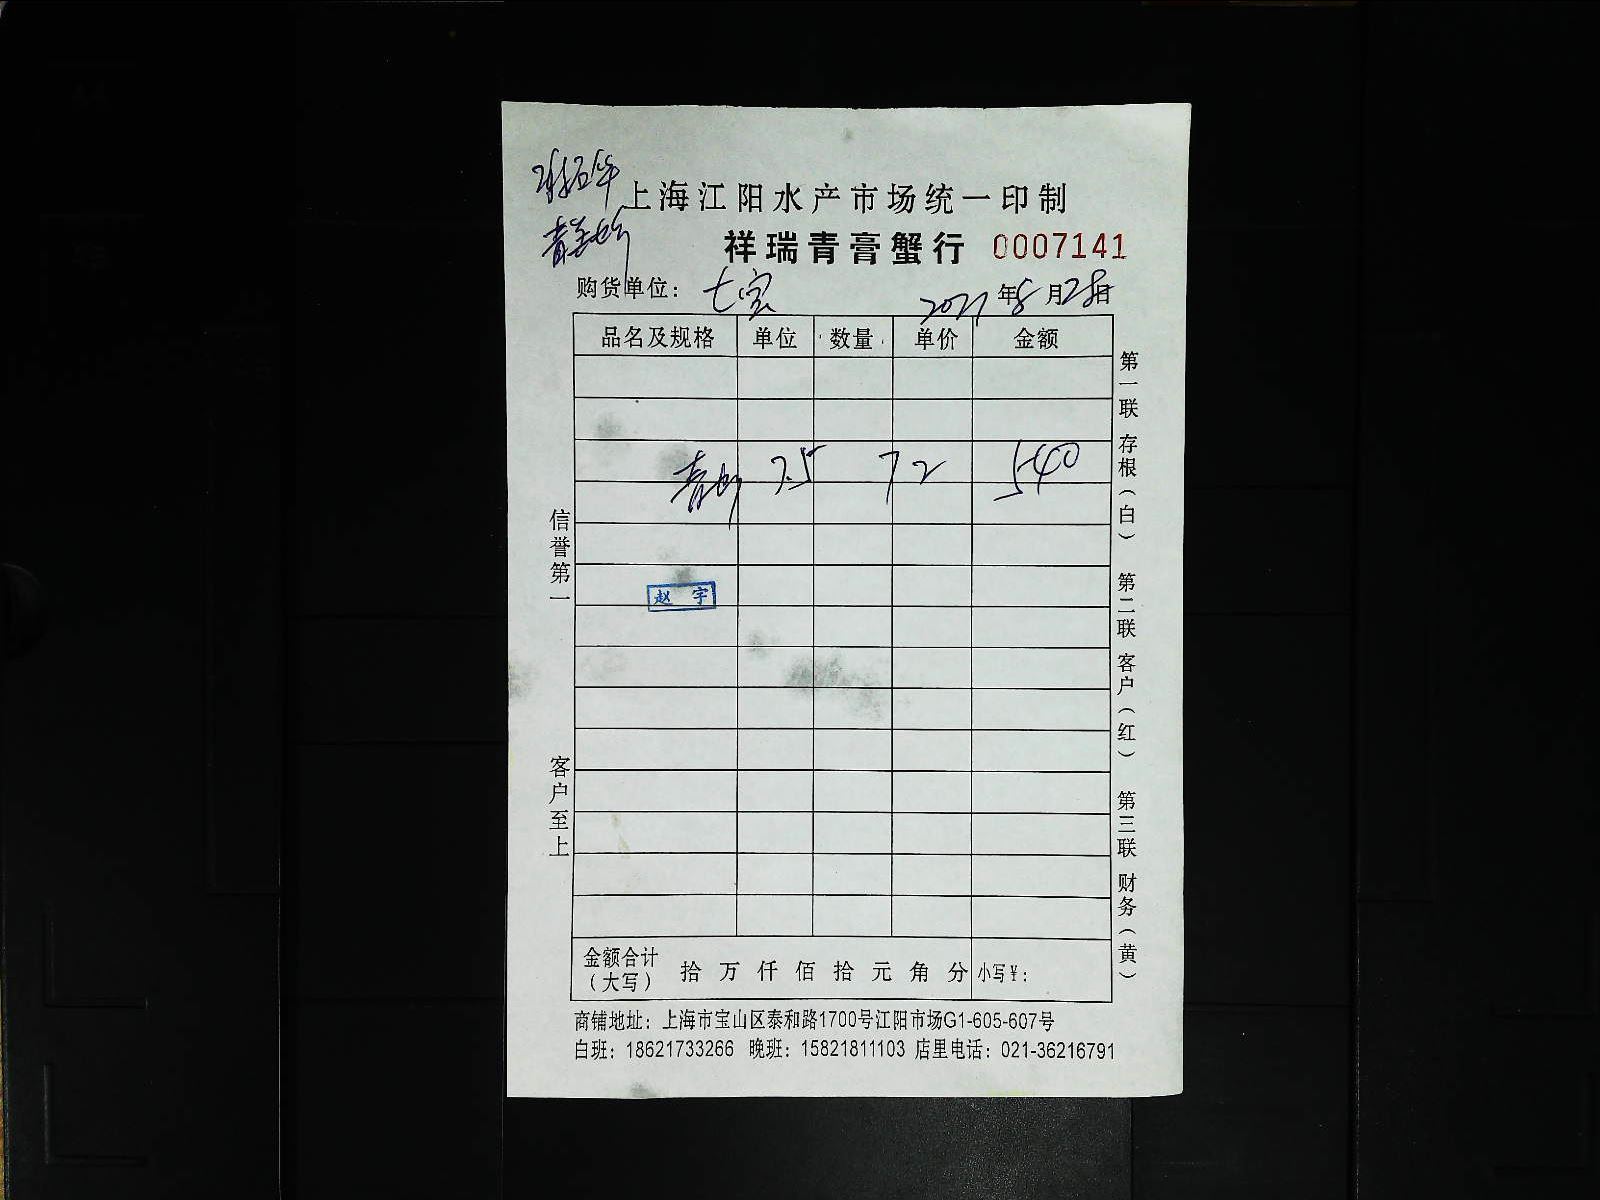 上海江阳水产市场统一印制
祥瑞青膏蟹行 0007141
购货单位： 七宝 2021年5月28日
品名及规格 单位 数量 单价 金额
7.5 72 540
赵宇
信誉第一
客户至上
第一联 存根（白） 第二联 客户（红） 第三联 财务（黄）
金额合计（大写） 拾 万 仟 佰 拾 元 角 分 小写￥:
商铺地址：上海市宝山区泰和路1700号江阳市场G1-605-607号
白班：18621733266 晚班：15821811103 店里电话：021-36216791